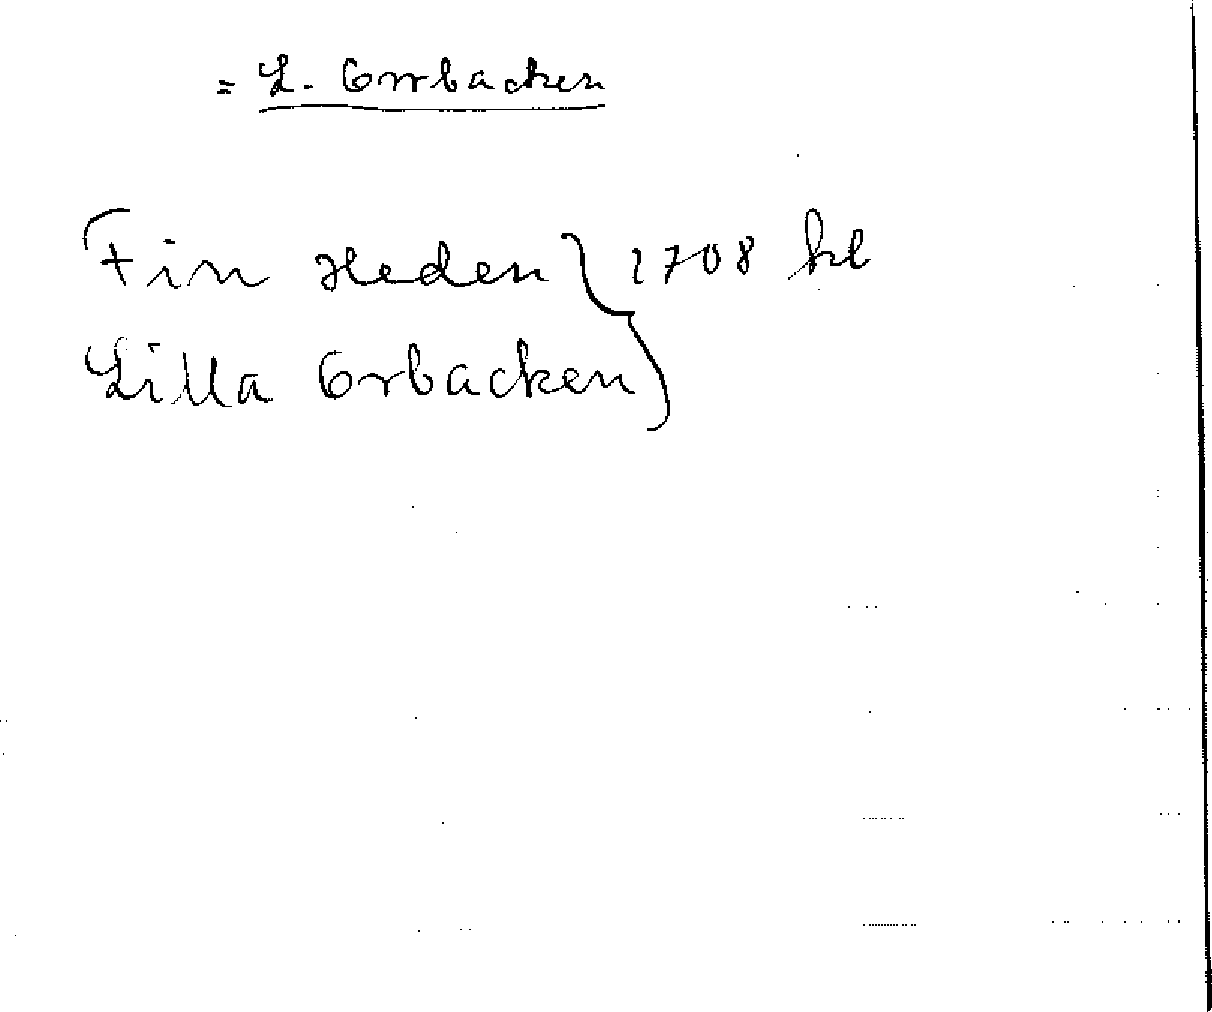 = L. Orrbacken
Fin Heden } 1708 hl
Lilla Orbacken